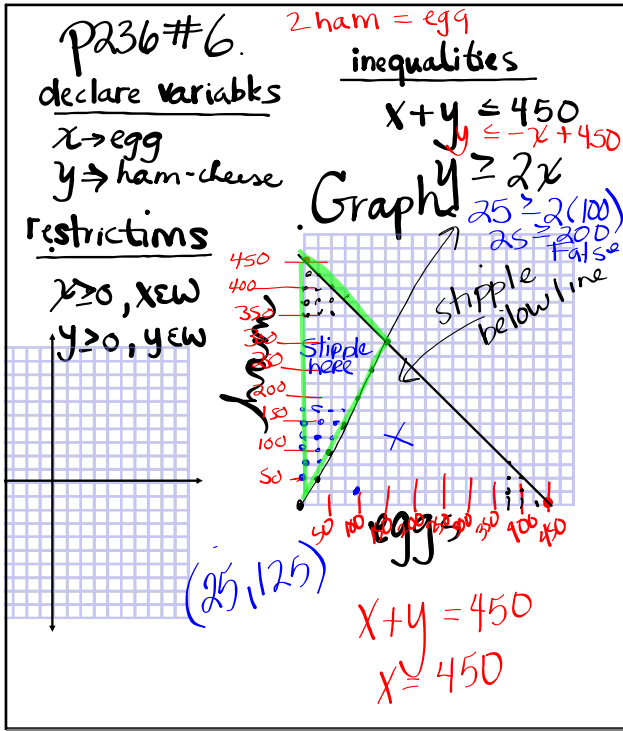 P236 #6.
2 ham = egg
declare variables
x → egg
y ⇒ ham-cheese
restrictions
x ≥ 0, x ε W
y ≥ 0, y ε W
inequalities
x + y ≤ 450
y ≤ -x + 450
y ≥ 2x
25 ≥ 2(100)
25 ≥ 200
False
Graph
stipple
below line
Stipple
here
450
400
350
200
150
100
50
50 100 350 400 450
eggs
(25, 125)
x + y = 450
x = 450